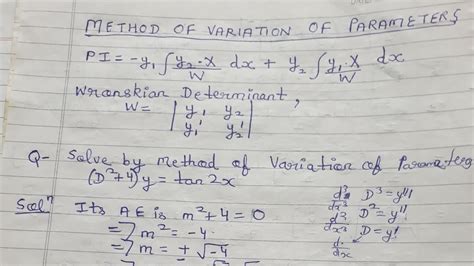 METHOD OF VARIATION OF PARAMETERS
PI = -y₁ ∫ y₂·X/W dx + y₂ ∫ y₁·X/W dx
Wronskian Determinant,
W = | y₁ y₂ |
| y₁' y₂' |
Q- Solve by method of Variation of Parameters
(D²+4)y = tan2x
Solⁿ Its AE is m²+4=0
⇒ m² = -4
⇒ m = ± √-4
d³/dx³ D³=y'''
d²/dx² D²=y''
d/dx D=y'